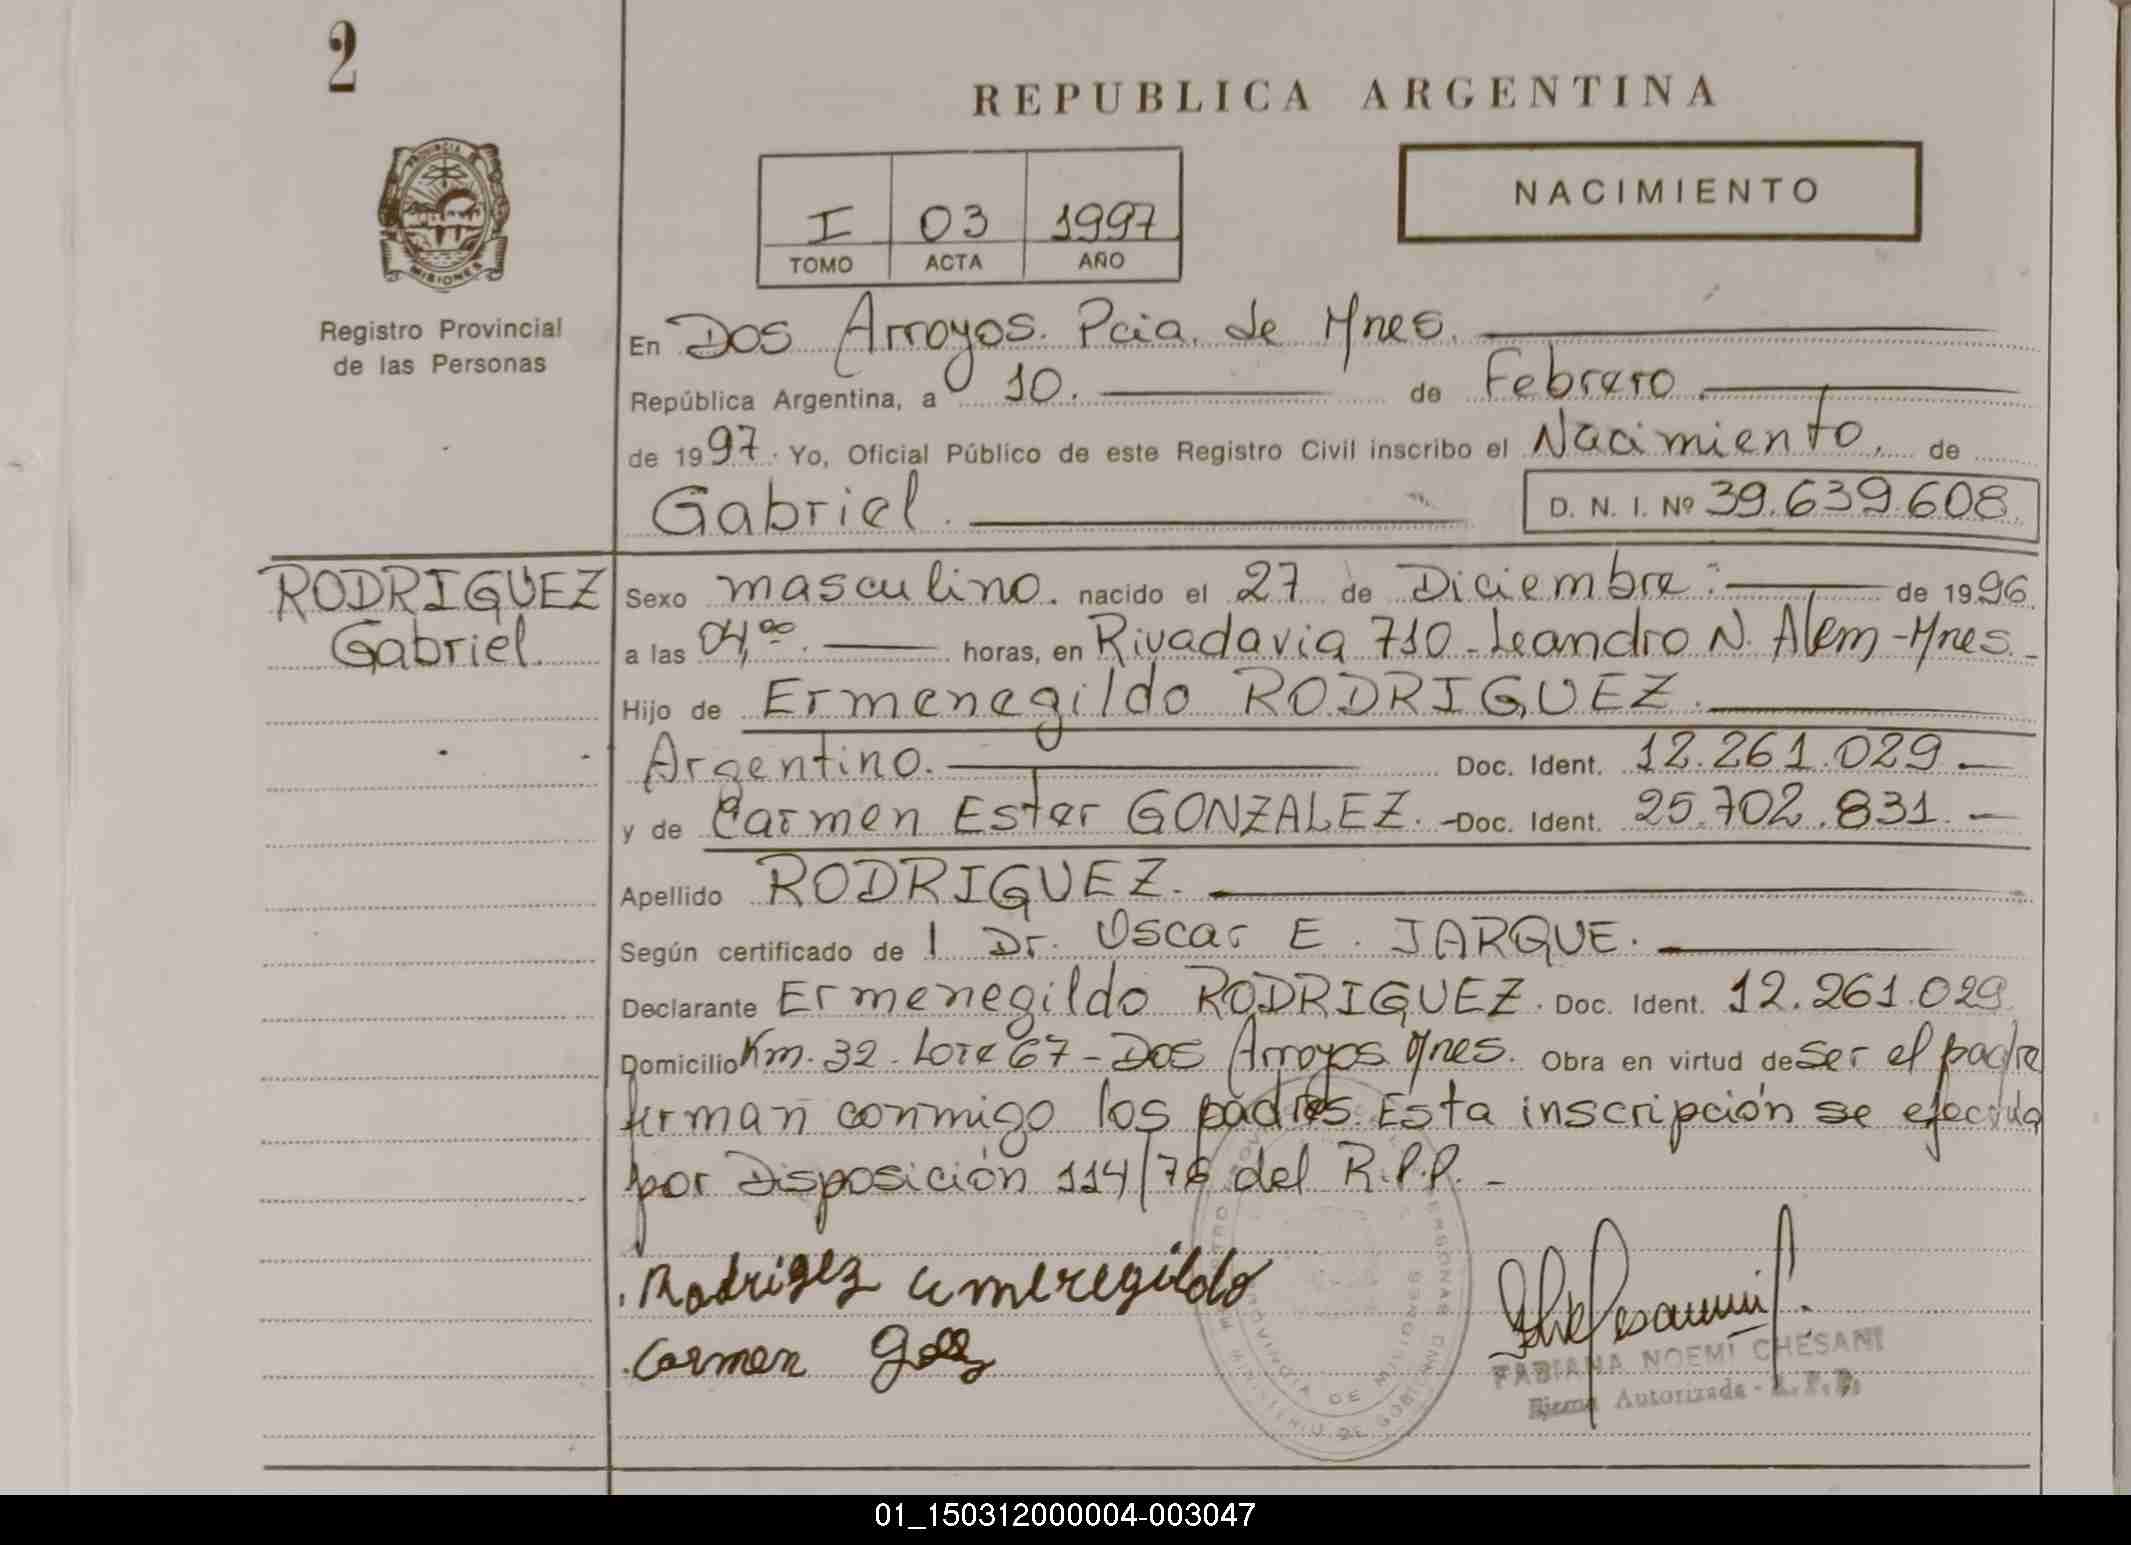 2
REPUBLICA ARGENTINA
PROVINCIA DE
MISIONES
Registro Provincial
de las Personas
I 03 1997
TOMO ACTA AÑO
NACIMIENTO
En Dos Arroyos. Pcia. de Mnes.
República Argentina, a 10. de Febrero.
de 1997. Yo, Oficial Público de este Registro Civil inscribo el Nacimiento. de
Gabriel. D. N. I. Nº 39.639.608.
RODRIGUEZ
Gabriel.
Sexo masculino. nacido el 27 de Diciembre: de 1996
a las 04,00. horas, en Rivadavia 710 - Leandro N. Alem - Mnes. -
Hijo de Ermenegildo RODRIGUEZ.
Argentino. Doc. Ident. 12.261.029 -
y de Carmen Ester GONZALEZ. - Doc. Ident. 25.702.831. -
Apellido RODRIGUEZ.
Según certificado de l Dr. Oscar E. JARQUE.
Declarante Ermenegildo RODRIGUEZ. Doc. Ident. 12.261.029
Domicilio Km. 32 - Lote 67 - Dos Arroyos Mnes. Obra en virtud de Ser el padre
firman conmigo los padres. Esta inscripción se efectúa
por Disposición 114/76 del R.P.P. -
Rodrigez
Carmen
FABIANA NOEMI CHESANI
Firma Autorizada -
PROVINCIA DE MISIONES
MINISTERIO DE GOBIERNO
01_150312000004-003047